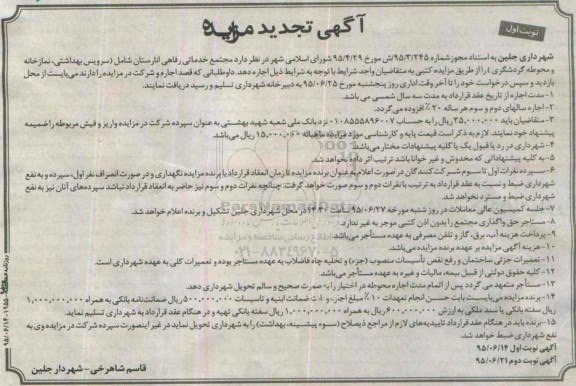 آگهی تجدید مزایده
نوبت اول
شهرداری جلین به استناد مجوز شماره ۹۵/۳/۲۴۵/ش مورخ ۹۵/۴/۲۹ شورای اسلامی شهر در نظر دارد مجتمع خدماتی رفاهی انارستان شامل (سرویس بهداشتی، نمازخانه
و محوطه گردشگری) را از طریق مزایده کتبی به متقاضیان واجد شرایط با توجه به شرایط ذیل اجاره دهد. داوطلبانی که قصد اجاره و شرکت در مزایده را دارند می‌بایست از محل
بازدید و سپس درخواست خود را تا آخر وقت اداری روز پنجشنبه مورخ ۹۵/۰۶/۲۵ به دبیرخانه شهرداری تسلیم و رسید دریافت نمایند.
۱-مدت اجاره از تاریخ عقد قرارداد به مدت سه سال شمسی می باشد.
۲-اجاره سالهای دوم و سوم هر ساله ۲۰٪ افزوده می گردد.
۳-متقاضیان باید ۳۵,۰۰۰,۰۰۰ ریال را به حساب ۰۱۰۸۵۵۵۸۹۶۰۰۷ نزد بانک ملی شعبه شهید بهشتی به عنوان سپرده شرکت در مزایده واریز و فیش مربوطه را ضمیمه
پیشنهاد خود نمایند. لازم به ذکر است قیمت پایه و کارشناسی مورد مزایده ماهیانه ۱۵,۰۰۰,۰۰۰ ریال می‌باشد.
۴-شهرداری در رد یا قبول یک یا کلیه پیشنهادات مختار می‌باشد.
۵-به کلیه پیشنهاداتی که مخدوش و غیر خوانا باشد ترتیب اثر داده نخواهد شد.
۶-سپرده نفرات اول تا سوم شرکت کنندگان در صورت اعلام به عنوان برنده مزایده تا زمان انعقاد قرارداد با برنده مزایده نگهداری و در صورت انصراف نفر اول، سپرده و به نفع
شهرداری ضبط و نسبت به عقد قرارداد به ترتیب با نفرات دوم و سوم صورت خواهد گرفت. چنانچه نفرات دوم و سوم نیز حاضر به انعقاد قرارداد نباشد سپرده‌های آنان نیز به نفع
شهرداری ضبط و مسترد نخواهد شد.
۷-جلسه کمیسیون عالی معاملات در روز شنبه مورخه ۹۵/۰۶/۲۷ ساعت ۱۳:۳۰ در محل شهرداری جلین تشکیل و برنده اعلام خواهد شد.
۸-مستاجر حق واگذاری مجتمع را بدون اذن کتبی موجر به غیر ندارد.
۹-پرداخت هزینه آب، برق، گاز و تلفن مصرفی به عهده مستأجر می‌باشد.
۱۰-هزینه آگهی مزایده بر عهده برنده مزایده می‌باشد.
۱۱-تعمیرات جزئی ساختمان و رفع نقص تأسیسات منصوب (جزء) و تخلیه چاه فاضلاب به عهده مستاجر بوده و تعمیرات کلی به عهده شهرداری است.
۱۲-کلیه حقوق دولتی از قبیل بیمه، مالیات و غیره به عهده مستأجر می‌باشد.
۱۳-مستأجر متعهد می گردد پس از اتمام مدت اجاره محوطه در اختیار را به صورت صحیح و سالم تحویل شهرداری دهد.
۱۴-برنده مزایده می‌بایست بابت حسن انجام تعهدات ۱۰٪ مبلغ اجاره و بابت ضمانت ابنیه و تاسیسات ۵۰۰,۰۰۰,۰۰۰ ریال ضمانتنامه بانکی به همراه ۱,۰۰۰,۰۰۰,۰۰۰
ریال سفته بانکی یا سند ملکی به ارزش ۶۰۰,۰۰۰,۰۰۰ ریال به همراه ۱,۰۰۰,۰۰۰,۰۰۰ ریال سفته بانکی تهیه و در هنگام عقد قرارداد به شهرداری تسلیم نماید.
۱۵-برنده باید در هنگام عقد قرارداد تاییدیه‌های لازم از مراجع ذیصلاح (سوء پیشینه، بهداشت) را به شهرداری تحویل نماید در غیر اینصورت سپرده شرکت در مزایده وی به
نفع شهرداری ضبط خواهد شد.
آگهی نوبت اول ۹۵/۰۶/۱۴
آگهی نوبت دوم ۹۵/۰۶/۲۱
قاسم شاهرخی - شهردار جلین
ParsNamadData
۰۲۱-۸۸۳۴۹۶۷۰